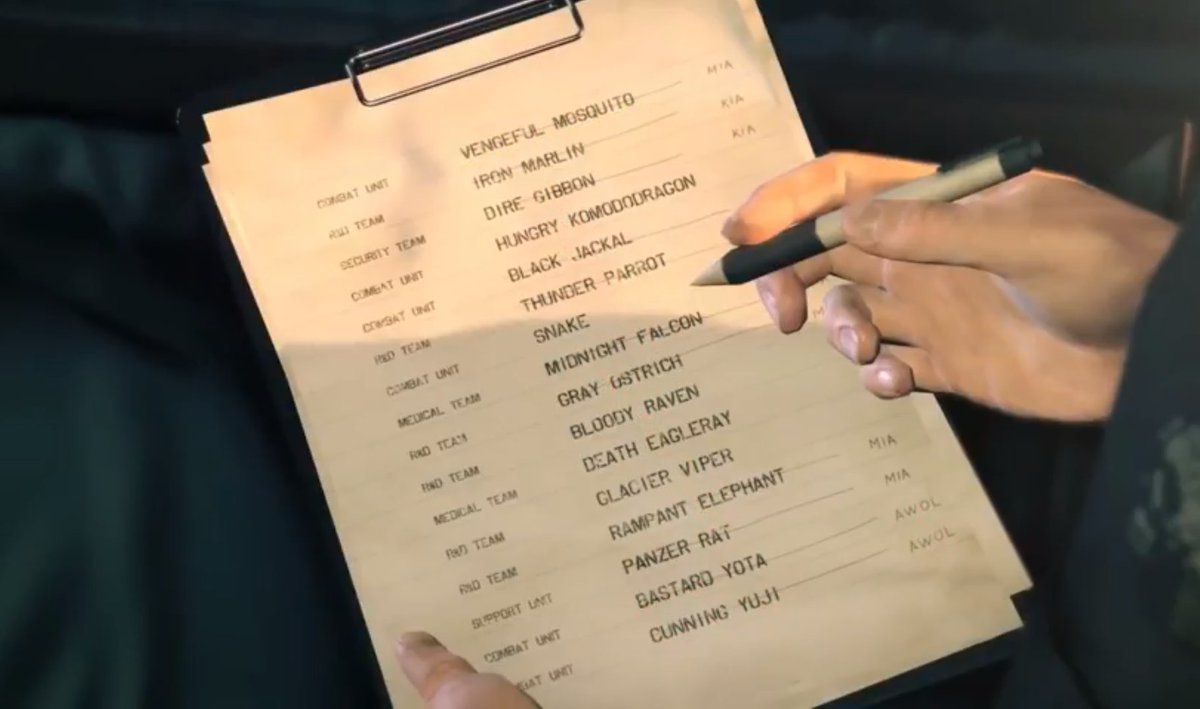 COMBAT UNIT VENGEFUL MOSQUITO MIA
R&D TEAM IRON MARLIN KIA
SECURITY TEAM DIRE GIBBON KIA
COMBAT UNIT HUNGRY KOMODODRAGON
COMBAT UNIT BLACK JACKAL
R&D TEAM THUNDER PARROT
COMBAT UNIT SNAKE
MEDICAL TEAM MIDNIGHT FALCON
R&D TEAM GRAY OSTRICH
R&D TEAM BLOODY RAVEN
MEDICAL TEAM DEATH EAGLERAY
R&D TEAM GLACIER VIPER
R&D TEAM RAMPANT ELEPHANT MIA
SUPPORT UNIT PANZER RAT MIA
COMBAT UNIT BASTARD YOTA AWOL
UNIT CUNNING YUJI AWOL